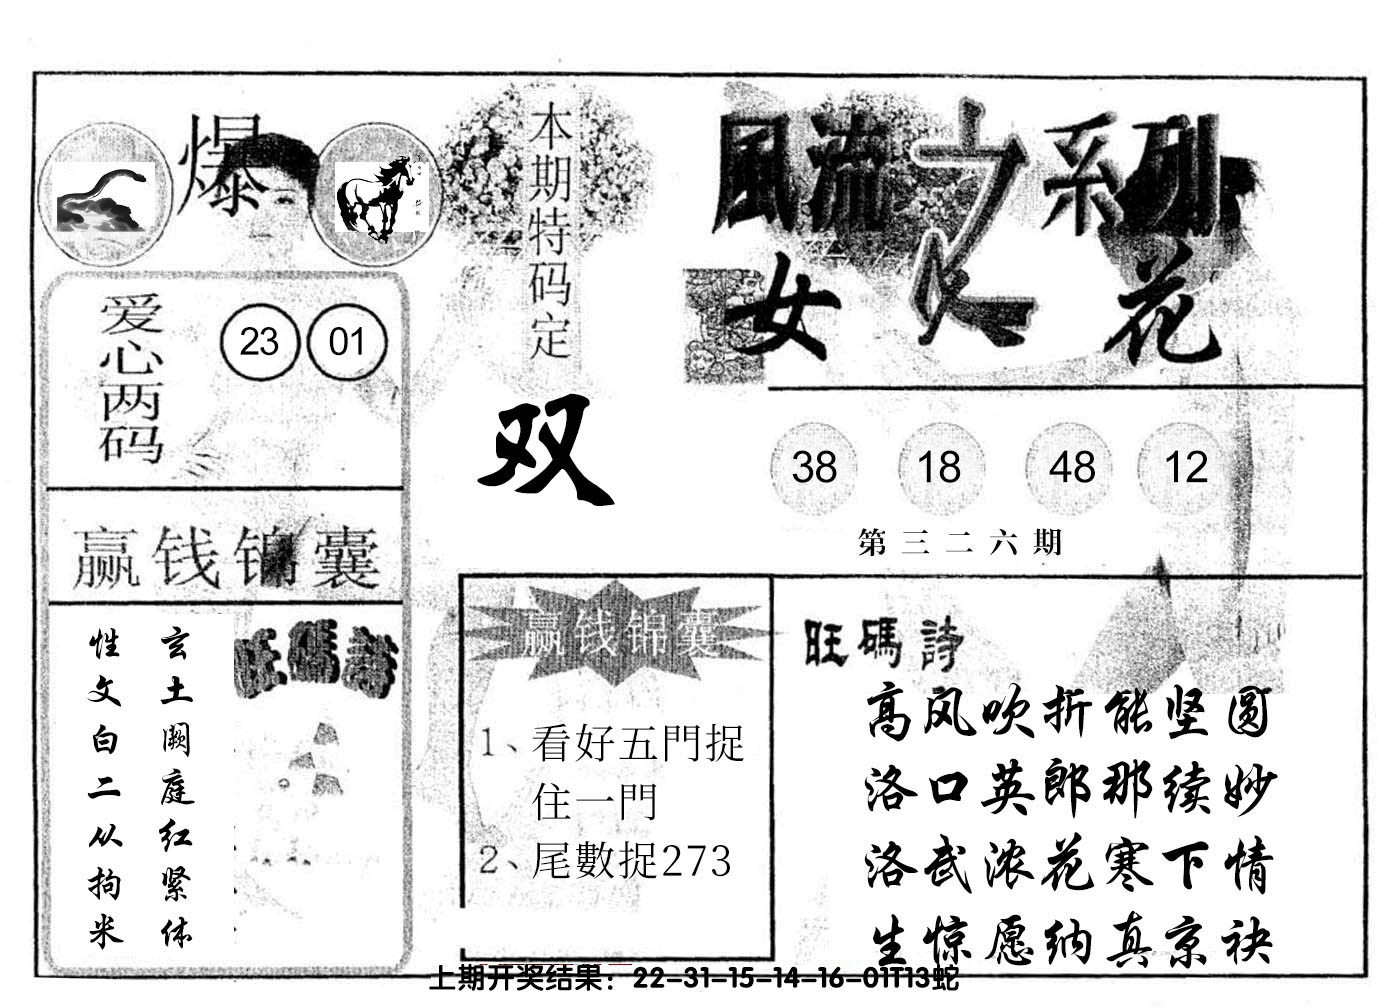 爆
本期特码定
双
風流之系列
女人花
爱心两码
23 01
38 18 48 12
第三二六期
赢钱锦囊
玄土阙庭红紧体
性文白二从拘米
旺碼詩
赢钱锦囊
1、看好五門捉
住一門
2、尾數捉273
旺碼詩
高风吹折能坚圆
洛口英郎那续妙
洛武浓花寒下情
生惊愿纳真京袂
上期开奖结果：22-31-15-14-16-01T13蛇